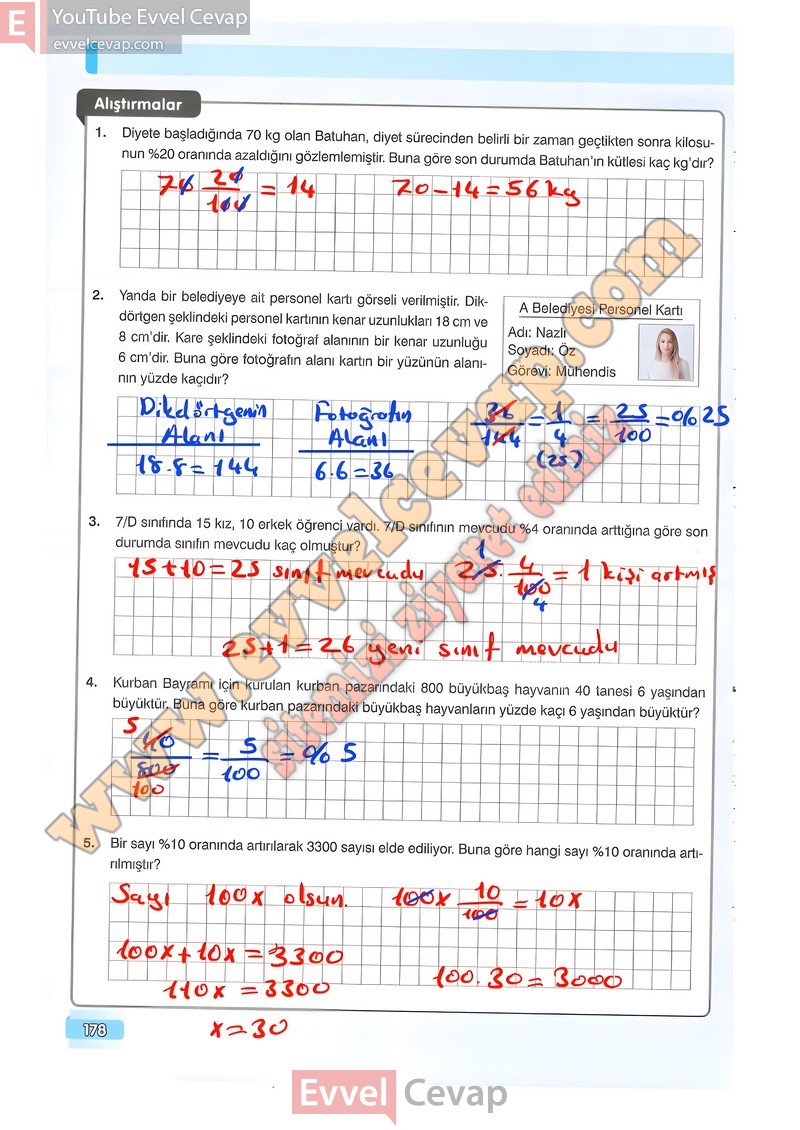 YouTube Evvel Cevap
evvelcevap.com
Alıştırmalar
1. Diyete başladığında 70 kg olan Batuhan, diyet sürecinden belirli bir zaman geçtikten sonra kilosu-
nun %20 oranında azaldığını gözlemlemiştir. Buna göre son durumda Batuhan'ın kütlesi kaç kg'dır?
70 20/100 = 14 70-14=56 kg
2. Yanda bir belediyeye ait personel kartı görseli verilmiştir. Dik-
dörtgen şeklindeki personel kartının kenar uzunlukları 18 cm ve
8 cm'dir. Kare şeklindeki fotoğraf alanının bir kenar uzunluğu
6 cm'dir. Buna göre fotoğrafın alanı kartın bir yüzünün alanı-
nın yüzde kaçıdır?
A Belediyesi Personel Kartı
Adı: Nazlı
Soyadı: Öz
Görevi: Mühendis
Dikdörtgenin
Alanı
18.8=144
Fotoğrafın
Alanı
6.6=36
36/144 = 1/4 = 25/100 = %25
(25)
3. 7/D sınıfında 15 kız, 10 erkek öğrenci vardı. 7/D sınıfının mevcudu %4 oranında arttığına göre son
durumda sınıfın mevcudu kaç olmuştur?
15+10=25 sınıf mevcudu 1 25. 4/100 = 1 kişi artmış
4
25+1=26 yeni sınıf mevcudu
4. Kurban Bayramı için kurulan kurban pazarındaki 800 büyükbaş hayvanın 40 tanesi 6 yaşından
büyüktür. Buna göre kurban pazarındaki büyükbaş hayvanların yüzde kaçı 6 yaşından büyüktür?
5
40/800 = 5/100 = %5
100
5. Bir sayı %10 oranında artırılarak 3300 sayısı elde ediliyor. Buna göre hangi sayı %10 oranında artı-
rılmıştır?
Sayı 100x olsun. 100x 10/100 = 10x
100x+10x=3300
110x=3300
100.30=3000
x=30
178
www.evvelcevap.com
sitemizi ziyaret ediniz
Evvel Cevap